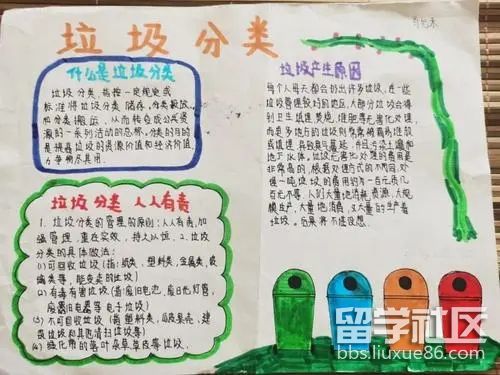 垃圾分类
什么是垃圾分类
垃圾分类,指按一定规定或
标准将垃圾分类储存、分类投放
和分类搬运,从而转变成公共资
源的一系列活动的总称,分类的目的
是提高垃圾的资源价值和经济价值,
力争物尽其用。
垃圾分类 人人有责
1、垃圾分类的管理的原则:人人有责,加
强管理,重在实效,持之以恒。2、垃圾
分类的具体做法:
(1)可回收垃圾(指:纸类、塑料类、金属类、玻
璃类等,能变卖的垃圾)
(2)有毒有害垃圾(指:废旧电池、废旧光灯管、
废旧电器等电子垃圾)
(3)不可回收垃圾(指:塑料类、瓜皮果壳、建
(4)绿化带的落叶杂草草皮等垃圾
垃圾产生原因
每个人每天都会扔出许多垃圾,在一些
垃圾管理较好的地区,大部分垃圾会得
到卫生填埋、焚烧、堆肥等无害化处理,
而更多地方的垃圾则常常被简易堆放
或填埋,导致臭气蔓延,并且污染土壤和
地下水体。垃圾无害化处理的费用是
非常高的,根据处理方式的不同,处
理一吨垃圾的费用约为一百元至几
百元不等。人们大量地消耗资源,大规
模生产,大量地消费,又大量的生产着
垃圾。后果将不堪设想。
留学社区
bbs.liuxue86.com